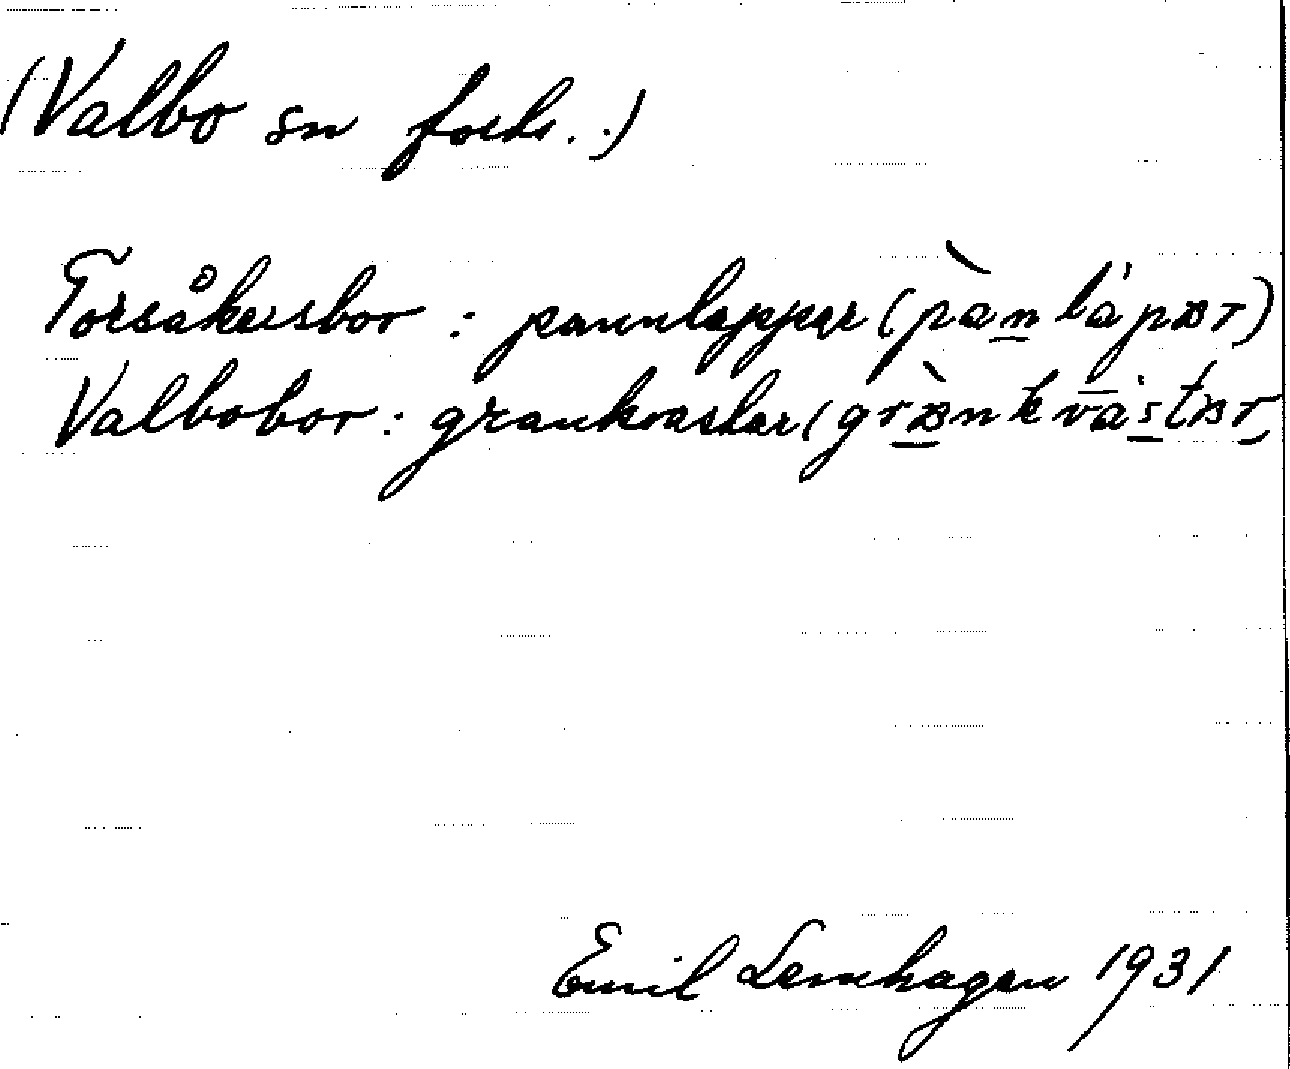 (Valbo sn forts..)
Torsåkersbor : pannlappar (pànlápar)
Valbobor : grankvastar (grànkvástar
Emil Lenhagen 1931